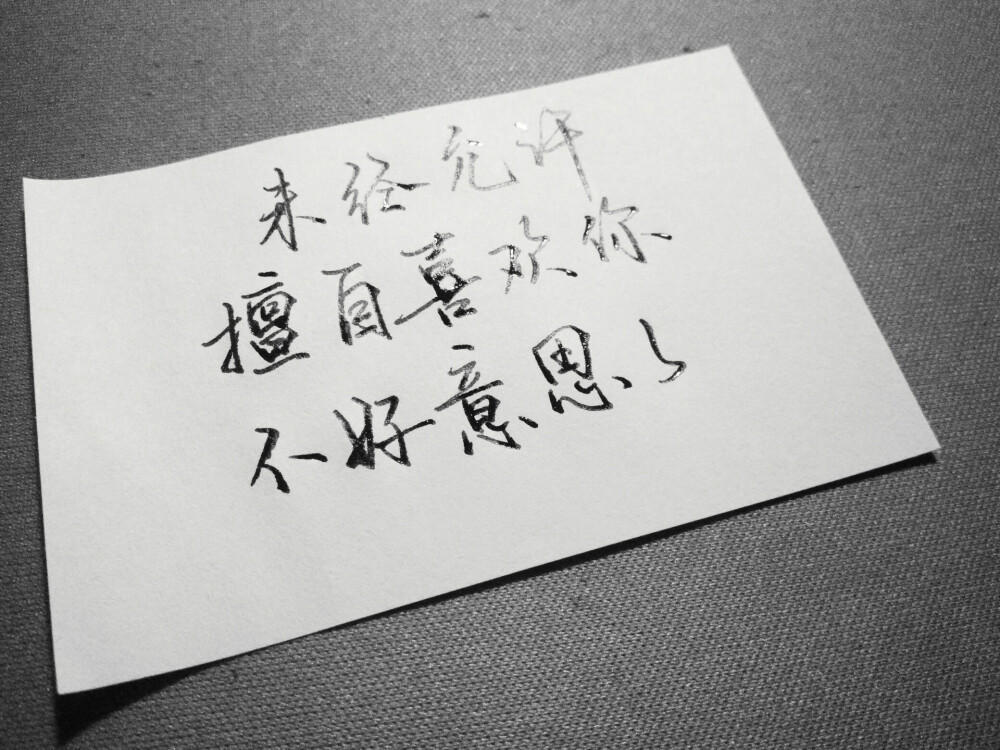 未经允许
擅自喜欢你
不好意思